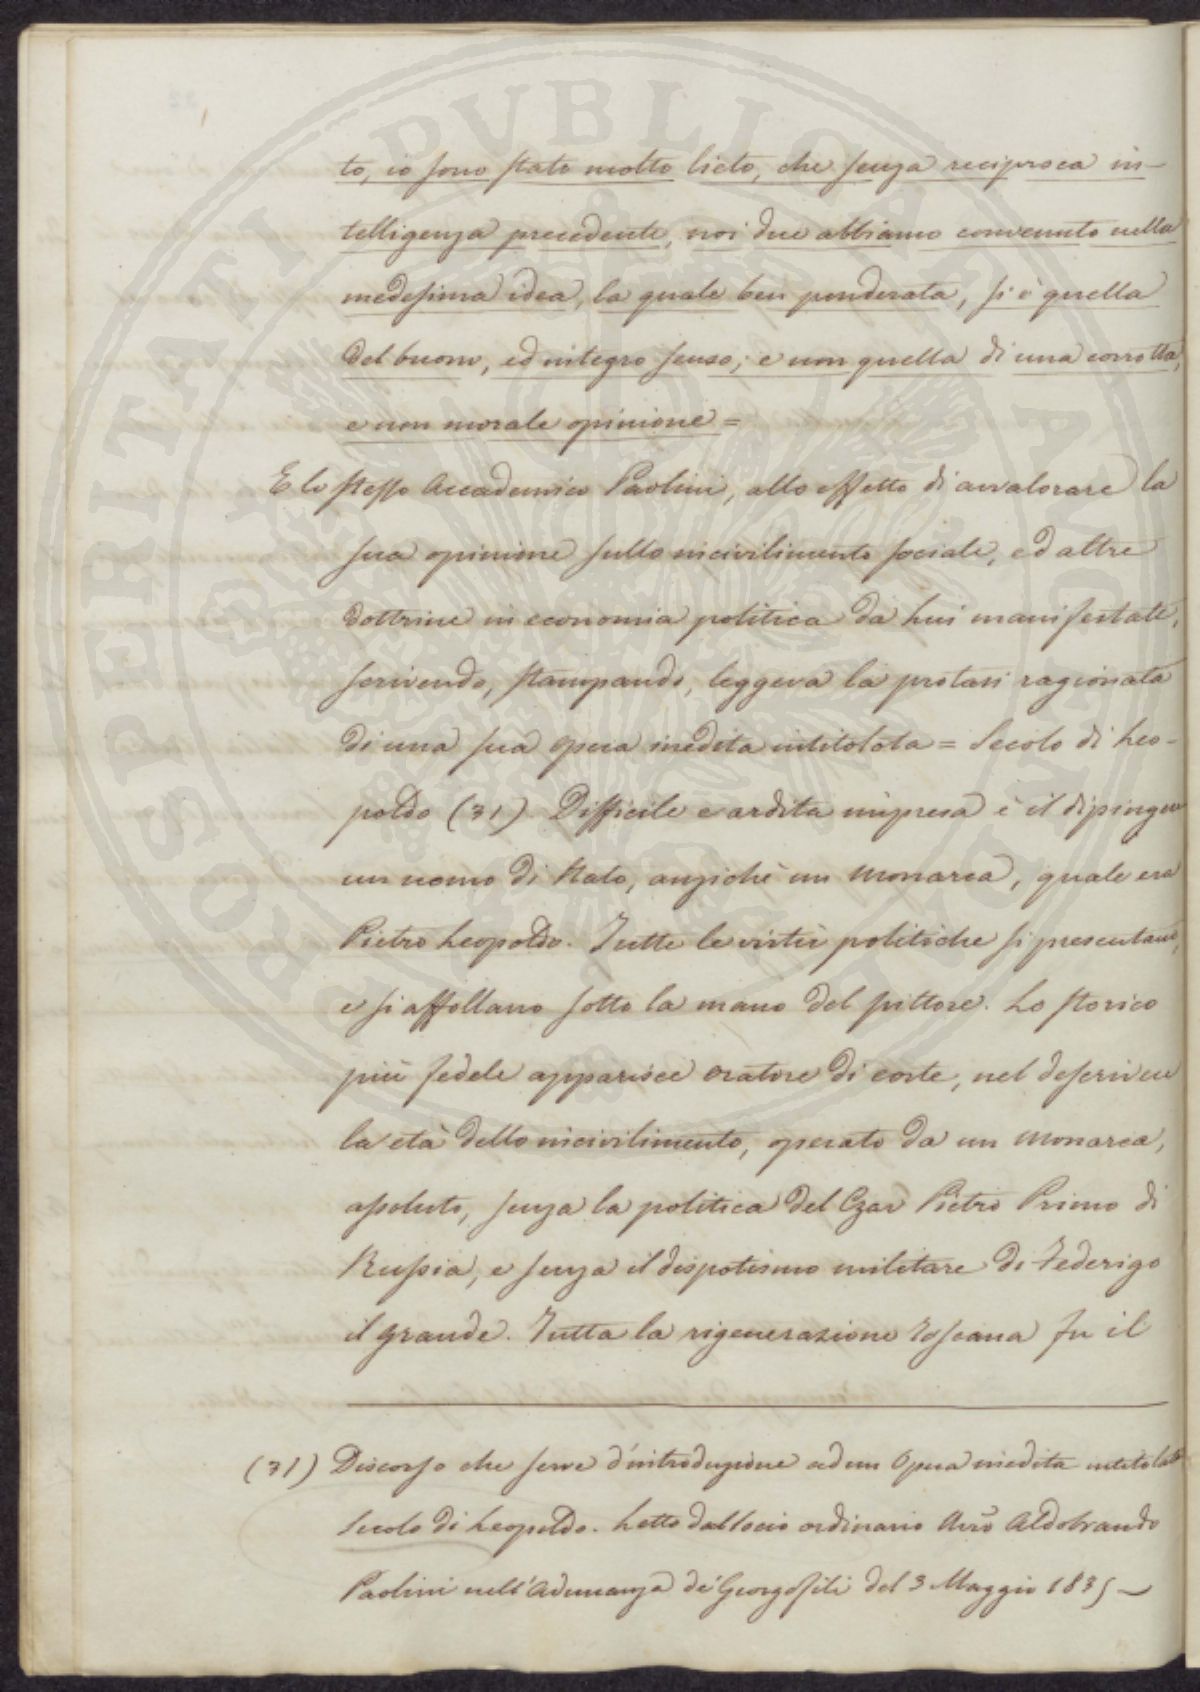 to, io sono stato molto lieto, che senza reciproca in-
telligenza precedente, noi due abbiamo convenuto nella
medesima idea, la quale ben ponderata, si è quella
del buono, ed integro senso; e non quella di una corrotta,
e non morale opinione =
E lo stesso Accademico Paolini, allo effetto di avvalorare la
sua opinione sullo incivilimento sociale, ed altre
dottrine in economia politica da Lui manifestate,
scrivendo, stampando, leggeva la protasi ragionata
di una sua opera inedita intitolata = Secolo di Leo-
poldo (31) Difficile e ardita impresa è il dipingere
un uomo di Stato, anzichè un Monarca, quale era
Pietro Leopoldo. Tutte le virtù politiche si presentano,
e si affollano sotto la mano del pittore. Lo storico
più fedele apparisce oratore di corte, nel descrivere
la età dello incivilimento, operato da un Monarca,
assoluto, senza la politica del Czar Pietro Primo di
Russia, e senza il dispotismo militare di Federigo
il grande. Tutta la rigenerazione Toscana fu il
(31) Discorso che serve d'introduzione ad un Opera inedita intitolata
Secolo di Leopoldo. Letto dal Socio ordinario Avv̄o Aldobrando
Paolini nell'Adunanza de' Georgofili del 3 Maggio 1835 —
PROSPERITATI PUBLICAE AUGENDAE